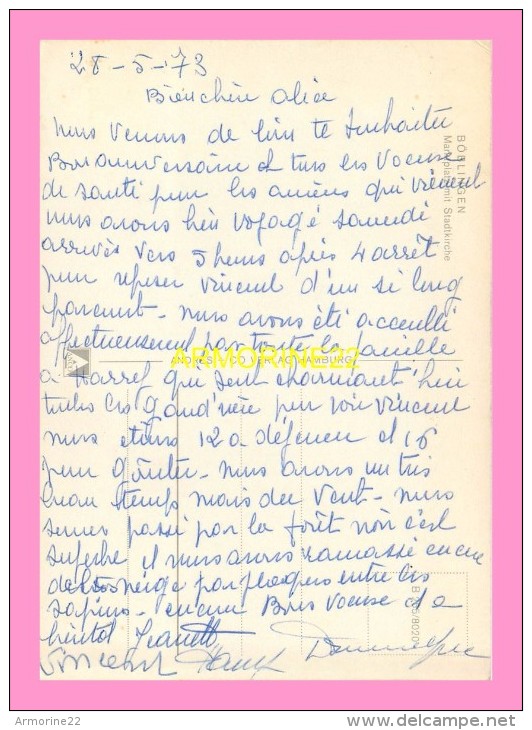 28-5-73
Bien chère Alice
nous venons de loin te souhaiter
Bon anniversaire et tous les Voeux
de santé pour les années qui viennent
nous avons bien voyagé samedi
arrivés vers 5 heures après 4 arrêt
pour reposer vincent d'un si long
parcourt - nous avons été accueilli
affectueusement par toute la famille
a qui sont charmant bien
toutes les grand'mère pour voir vincent
nous étions 12 a déjeuner et 16
pour goûter - nous avons un très
beau temps mais du vent - nous
sommes passé par la forêt noir c'est
superbe et nous avons ramassé encore
de la neige par plaques entre les
sapins - encore Bons Voeux et a
bientot Jeanett
Vincent Dominique
BÖBLINGEN
Marktplatz mit Stadtkirche
ANDRES + CO VERLAG HAMBURG
ARMORINE22
Armorine22
http://www.delcampe.net